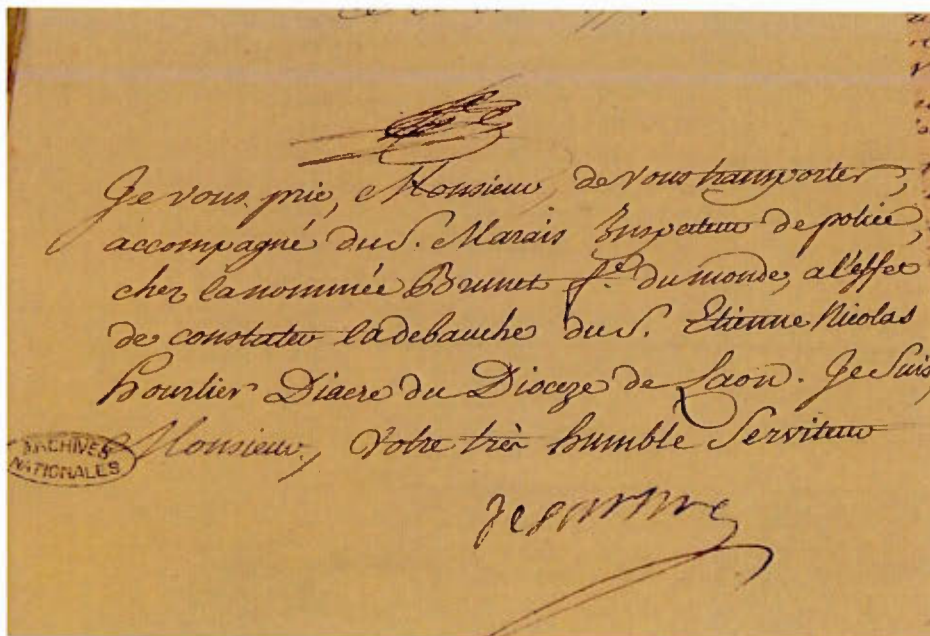 Je vous prie, Monsieur, de vous transporter,
accompagné du S. Marais Inspecteur de police,
chez la nommée Brunet f.e du monde, a l'effet
de constater la debauche du S. Etienne Nicolas
hourlier Diacre du Dioceze de Laon. Je Suis,
Monsieur, Votre très humble Serviteur
ARCHIVES
NATIONALES